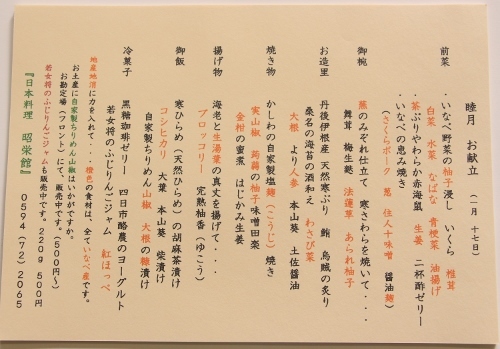 睦月 お献立 (一月 十七日)
前菜 ・いなべ野菜の柚子浸し いくら 椎茸
白菜 水菜 なばな 青梗菜 油揚げ
・茶ぶりやわらか赤海鼠 生姜 二杯酢ゼリー
・いなべの恵み焼き
(さくらポーク 葱 住人十味噌 醤油麹)
御椀 蕪のみぞれ仕立て 寒さわらを焼いて・・・
舞茸 梅生麩 法蓮草 あられ柚子
お造里 丹後伊根産 天然寒ぶり 鮪 烏賊の炙り
桑名の海苔の酒和え わさび菜
大根 より人参 本山葵 土佐醤油
焼き物 かしわの自家製塩麹(こうじ)焼き
実山椒 蒟蒻の柚子味噌田楽
金柑の蜜煮 はじかみ生姜
揚げ物 海老と生湯葉の真丈を揚げて・・・
ブロッコリー 完熟柚香(ゆこう)
御飯 寒ひらめ(天然ひらめ)の胡麻茶漬け
コシヒカリ 大葉 本山葵 柴漬け
自家製ちりめん山椒 大根の糠漬け
冷菓子 黒糖珈琲ゼリー 四日市酪農のヨーグルト
若女将のふじりんごジャム 紅ほっぺ
地産地消に力を入れて・・・橙色の食材は、全ていなべ産です。
お土産に自家製ちりめん山椒はいかがですか。
お勘定場(フロント)にて、販売中です。(500円〜)
若女将のふじりんごジャムも販売中です。220g 500円
『日本料理 昭栄館』 0594(72)2065